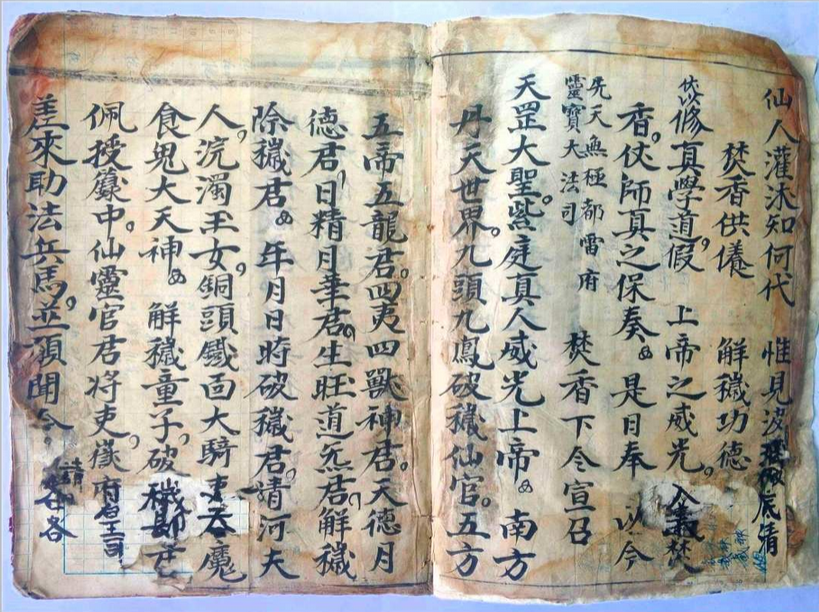 仙人灌沐知何代 惟見波 徹底清
焚香供儀 解穢功德
依修真學道假 上帝之威光。入 焚
香。仗師真之保奏 是日奉 以今
先天無極都雷府
靈寶大法司
焚香下令宣召
天罡大聖。紫庭真人威光上帝 南方
丹天世界。九頭九鳳破穢仙官。五方
五帝五龍君。四夷四獸神君。天德月
德君。日精月華君。生旺道炁君。解穢
除穢君 年月日時破穢君。請河夫
人。浣濁玉女。銅頭鐵面大騎吏吞魔
食鬼大天神 解穢童子。破穢
佩授籙中。仙靈官君将吏。嶽府
差來助法兵馬。並頭聞令。請 各